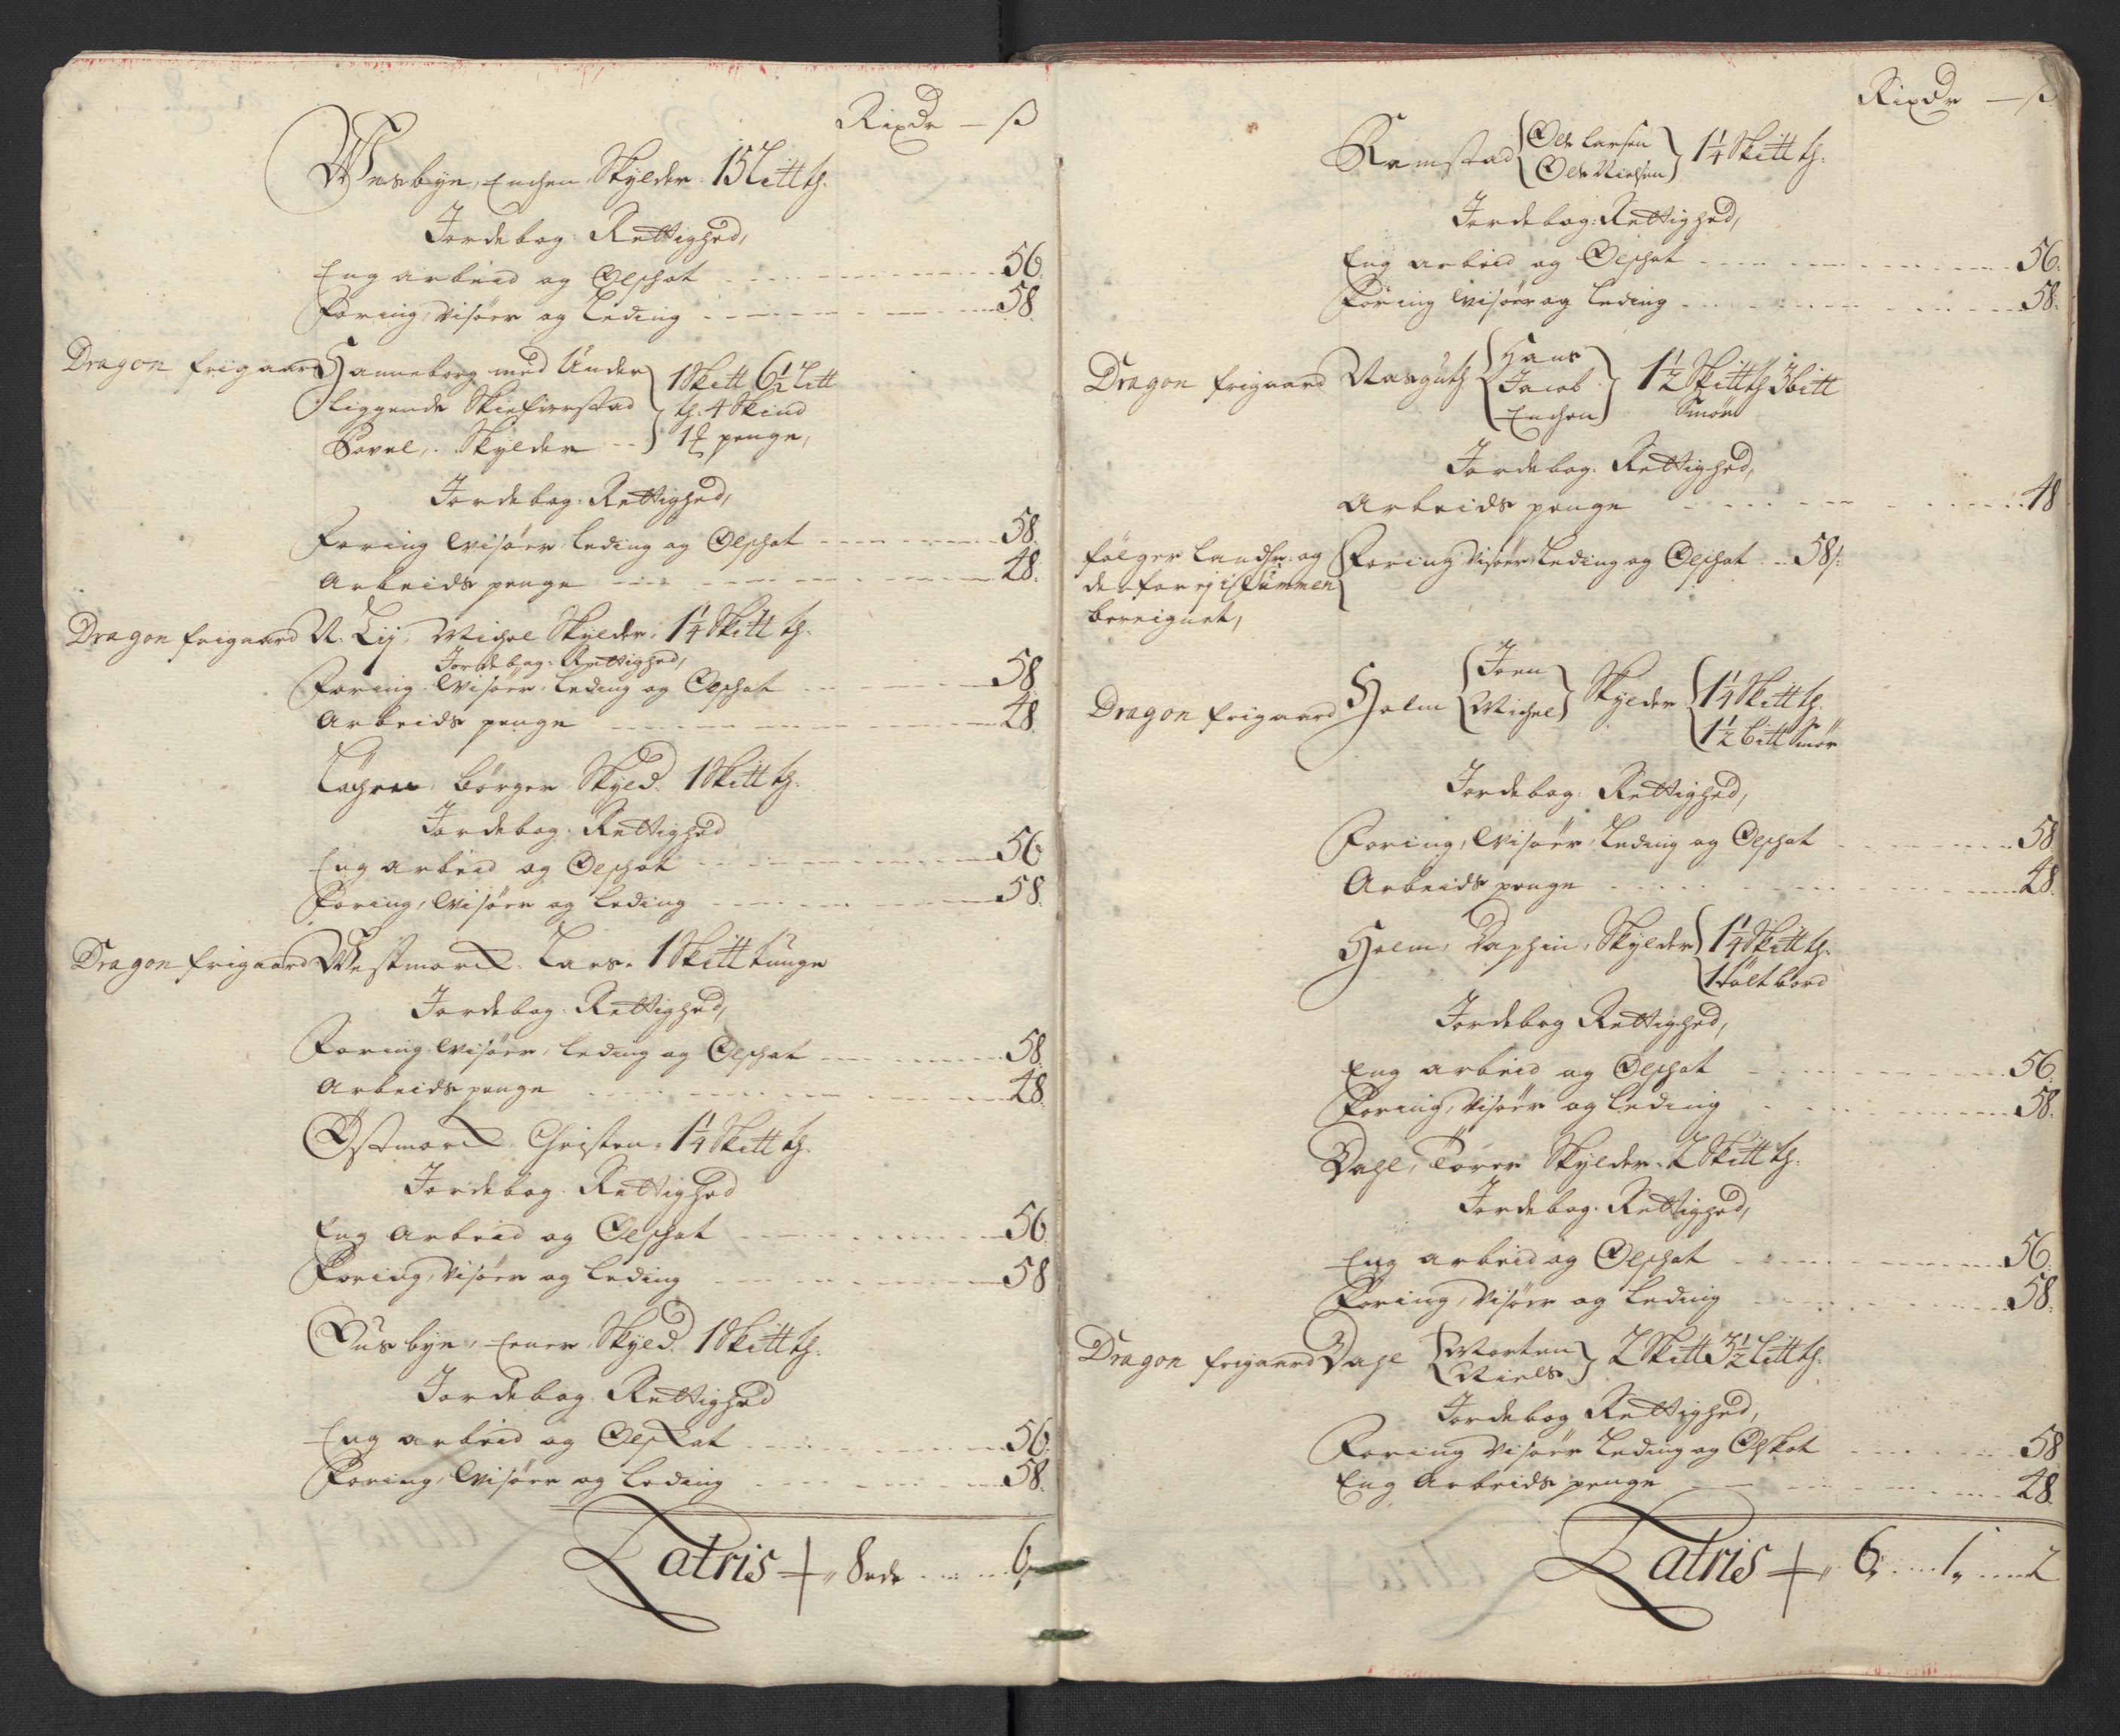 Rixdr — ß
Wesbye, Enchen Skylder 15 Litt th.
Jordebog: Rettighed,
Eng arbeid og Ølschat 56.
Foring, Visører og Leding 58.
Dragon frigaard Hanneborg med Under
liggende Skiefverstad
Povel, Skylder
1 Skitt 6½ Litt
th: 4 Skind
penge,
Jordebog: Rettighed,
Foring Wisører Leding og Ølschat 58.
Arbeids penge 48.
Dragon frigaard N. Lij, Michel Skylder, 1¼ Skitt th.
Jordebog: Rettighed,
Foring, Wisører, Leding og Ølschat 58
Arbeids penge 48
Børger Skyld. 1 Skitt th.
Jordebog: Rettighed
Eng arbeid og Ølschat 56
Foring, Wisører og Leding 58.
Dragon frigaard Westmorck. Lars. 1 Skitt tunge
Jordebog: Rettighed,
Foring Wisører, Leding og Ølschat 58.
Arbeids penge 48.
Østmorck, Christen, 1¼ Skitt th.
Jordebog: Rettighed
Eng Arbeid og Ølschat 56.
Foring, Visører og Leding 58
Ousbye, Ener Skyld. 1 Skitt th.
Jordebog: Rettighed
Eng arbeid og Ølskat 56.
Foring, Wisører og Leding 58.
Latris + 8 rdr 6,
Rixdr — ß
Ramstad
Ole Larsen
Ole Nielsen
1¼ Skitt th:
Jordebog: Rettighed,
Eng arbeid og Ølschat 56.
Foring Wisører og Leding 58.
Dragon frigaard
Hans
Jacob
Enchen
1½ Skitt th 3 bitt
Smør
Jordebog: Rettighed,
Arbeids penge 48
følger Landhr: og
derfor ej i Summen
bereignet,
Foring Visører Leding og Ølschat 58 ß:
Dragon frigaard Holm
Joen
Michel
Skylder
1¼ Skitt th.
1½ bitt Smør
Jordebog: Rettighed,
Foring, Wisører, Leding og Ølschat 58.
Arbeids penge 48.
Holm, Daphin, Skylder
1¼ Skitt th.
1 tolt bord
Jordebog Rettighed,
Eng arbeid og Ølschat 56.
Foring, Visører og Leding 58.
Dahl, Torer Skylder 2 Skitt th.
Jordebog: Rettighed,
Eng arbeid og Ølschat 56.
Foring, Visører og Leding 58.
Dragon frigaard Dahl
Morten
Niels
2 Skitt 3½ Litt th.
Jordebog Rettighed,
Foring Visører Leding og Ølskat 58
Eng Arbeids penge 48.
Latris + 6 1 2